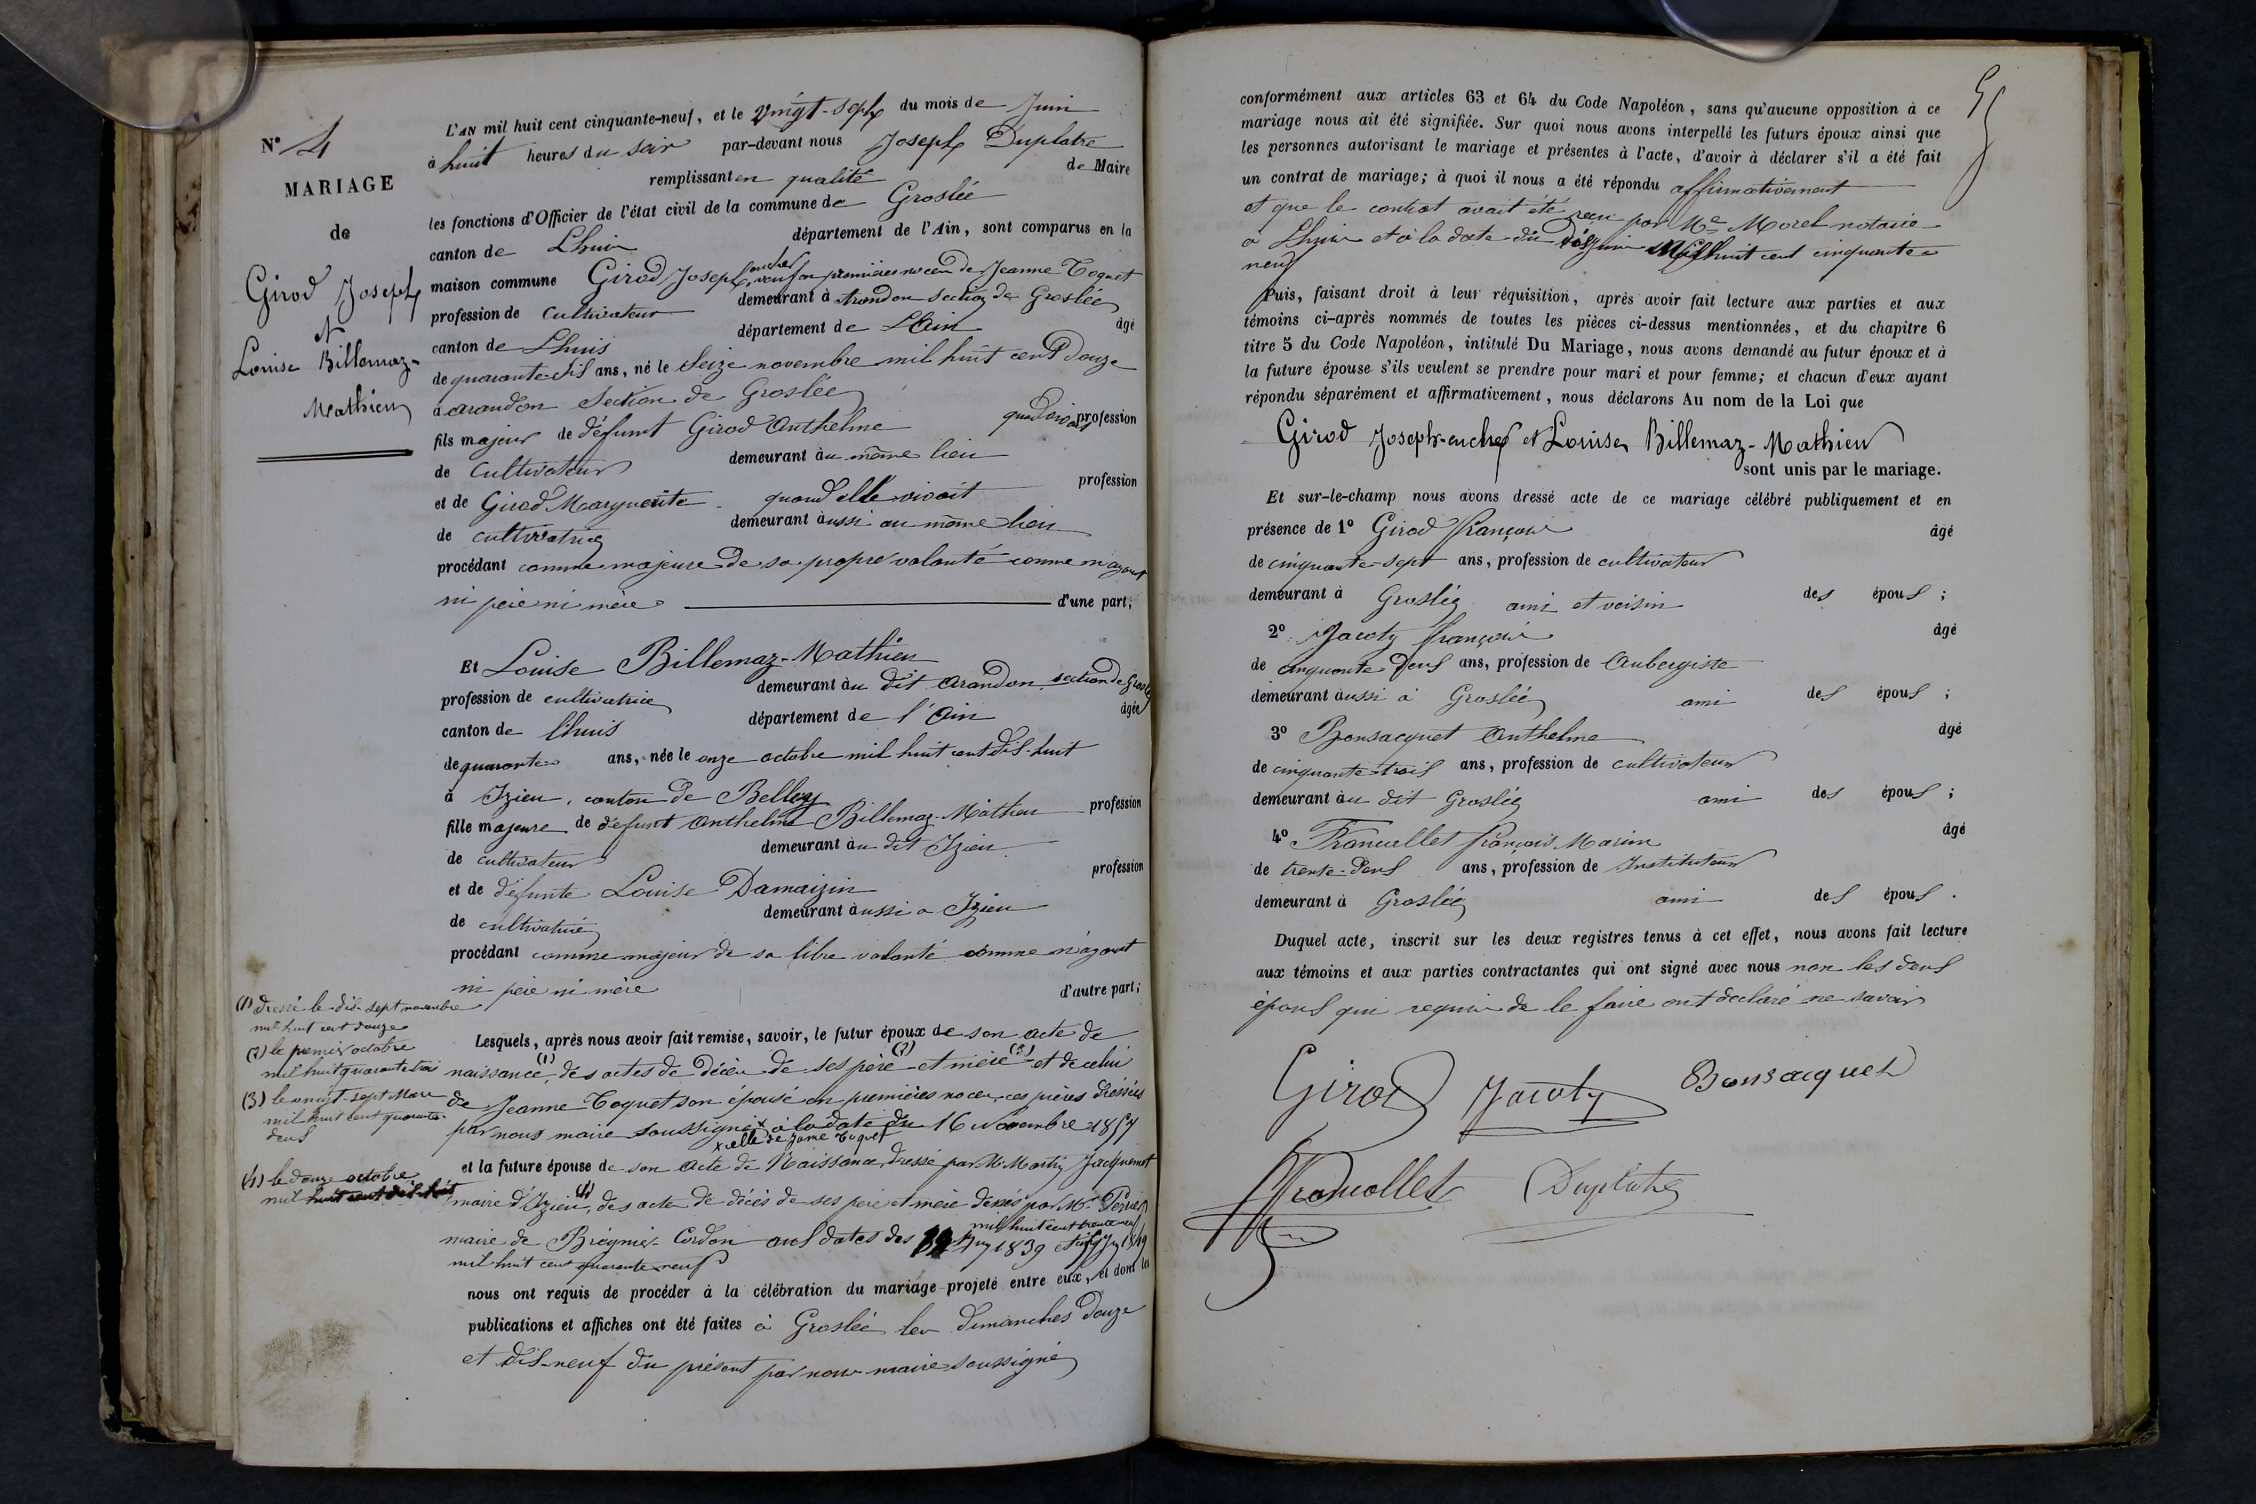 N° 4
MARIAGE
de
Girod Joseph
et
Louise Billemaz-
Mathieu
L'AN mil huit cent cinquante-neuf, et le vingt-sept du mois de Juin
à huit heures du soir par-devant nous Joseph Duplatre
remplissant en qualité de Maire
les fonctions d'Officier de l'état civil de la commune de Groslée
canton de Lhuis département de l'Ain, sont comparus en la
maison commune Girod Joseph veuf en premières noces de Jeanne Coquet
profession de cultivateur demeurant à Arandon section de Groslée
canton de Lhuis département de L'Ain âgé
de quarante six ans, né le Seize novembre mil huit cent douze
à arandon Section de Groslée
fils majeur de défunt Girod Anthelme quand vivait profession
de cultivateur demeurant au même lieu
et de Girod Marguerite quand elle vivait profession
de cultivatrice demeurant aussi au même lieu
procédant comme majeure de sa propre volonté comme n'ayant
ni père ni mère d'une part;
Et Louise Billemaz-Mathieu
profession de cultivatrice demeurant au dit Arandon section de Groslée
canton de Lhuis département de l'Ain âgée
de quarante ans, née le onze octobre mil huit cent dis-huit
à Izieu, canton de Belley
fille majeure de défunt Anthelme Billemaz-Mathieu profession
de cultivateur demeurant au dit Izieu
et de défunte Louise Damaizin profession
de cultivatrice demeurant aussi a Izieu
procédant comme majeur de sa libre volonté comme n'ayant
ni père ni mère d'autre part;
Lesquels, après nous avoir fait remise, savoir, le futur époux de son acte de
naissance (1), des actes de décès de ses père (2) et mère (3) et de celui
de Jeanne Coquet son épouse en premières noces, ces pièces dréssées
par nous maire soussigné x à la date du 16 Novembre 1857
x celle de Jeanne Coquet
et la future épouse de son acte de Naissance, dressé par Mr Martin Jacquemet
maire d'Izieu (4), des acte de décès de ses père et mère dressés par Mr Perrier
mil huit cent trente neuf
maire de Brégnier-Cordon aus dates des 1839 et 1849
mil huit cent quarante neuf
nous ont requis de procéder à la célébration du mariage projeté entre eux, et dont les
publications et affiches ont été faites à Groslée les dimanches douze
et dis-neuf du présent par nous maire soussigné
(1) dressé le dis-sept novembre
mil huit cent douze
(2) le premier octobre
mil huit quarante trois
(3) le vingt-sept Mars
mil huit cent quarante
deus
(4) le douze octobre
mil huit cent dis-huit
conformément aux articles 63 et 64 du Code Napoléon, sans qu'aucune opposition à ce
mariage nous ait été signifiée. Sur quoi nous avons interpellé les futurs époux ainsi que
les personnes autorisant le mariage et présentes à l'acte, d'avoir à déclarer s'il a été fait
un contrat de mariage; à quoi il nous a été répondu affirmativement
et que le contrat avait été reçu par Me Morel notaire
à Lhuis et à la date du Juin Mil huit cent cinquante
neuf
Puis, faisant droit à leur réquisition, après avoir fait lecture aux parties et aux
témoins ci-après nommés de toutes les pièces ci-dessus mentionnées, et du chapitre 6
titre 5 du Code Napoléon, intitulé Du Mariage, nous avons demandé au futur époux et à
la future épouse s'ils veulent se prendre pour mari et pour femme; et chacun d'eux ayant
répondu séparément et affirmativement, nous déclarons Au nom de la Loi que
Girod Joseph-eucher et Louise Billemaz-Mathieu
sont unis par le mariage.
Et sur-le-champ nous avons dressé acte de ce mariage célébré publiquement et en
présence de 1° Girod françois âgé
de cinquante-sept ans, profession de cultivateur
demeurant à Groslée ami et voisin des épous;
2° Jacoty françois âgé
de cinquante deus ans, profession de Aubergiste
demeurant aussi à Groslée ami des épous;
3° Bonsacquet Anthelme âgé
de cinquante-trois ans, profession de cultivateur
demeurant au dit Groslée ami des épous;
4° Tranuellet françois Marin âgé
de trente-deus ans, profession de Instituteur
demeurant à Groslée ami des épous.
Duquel acte, inscrit sur les deux registres tenus à cet effet, nous avons fait lecture
aux témoins et aux parties contractantes qui ont signé avec nous non les deus
épous qui requis de le faire ont déclaré ne savoir
Girod Jacoty Bonsacquet
Duplatre